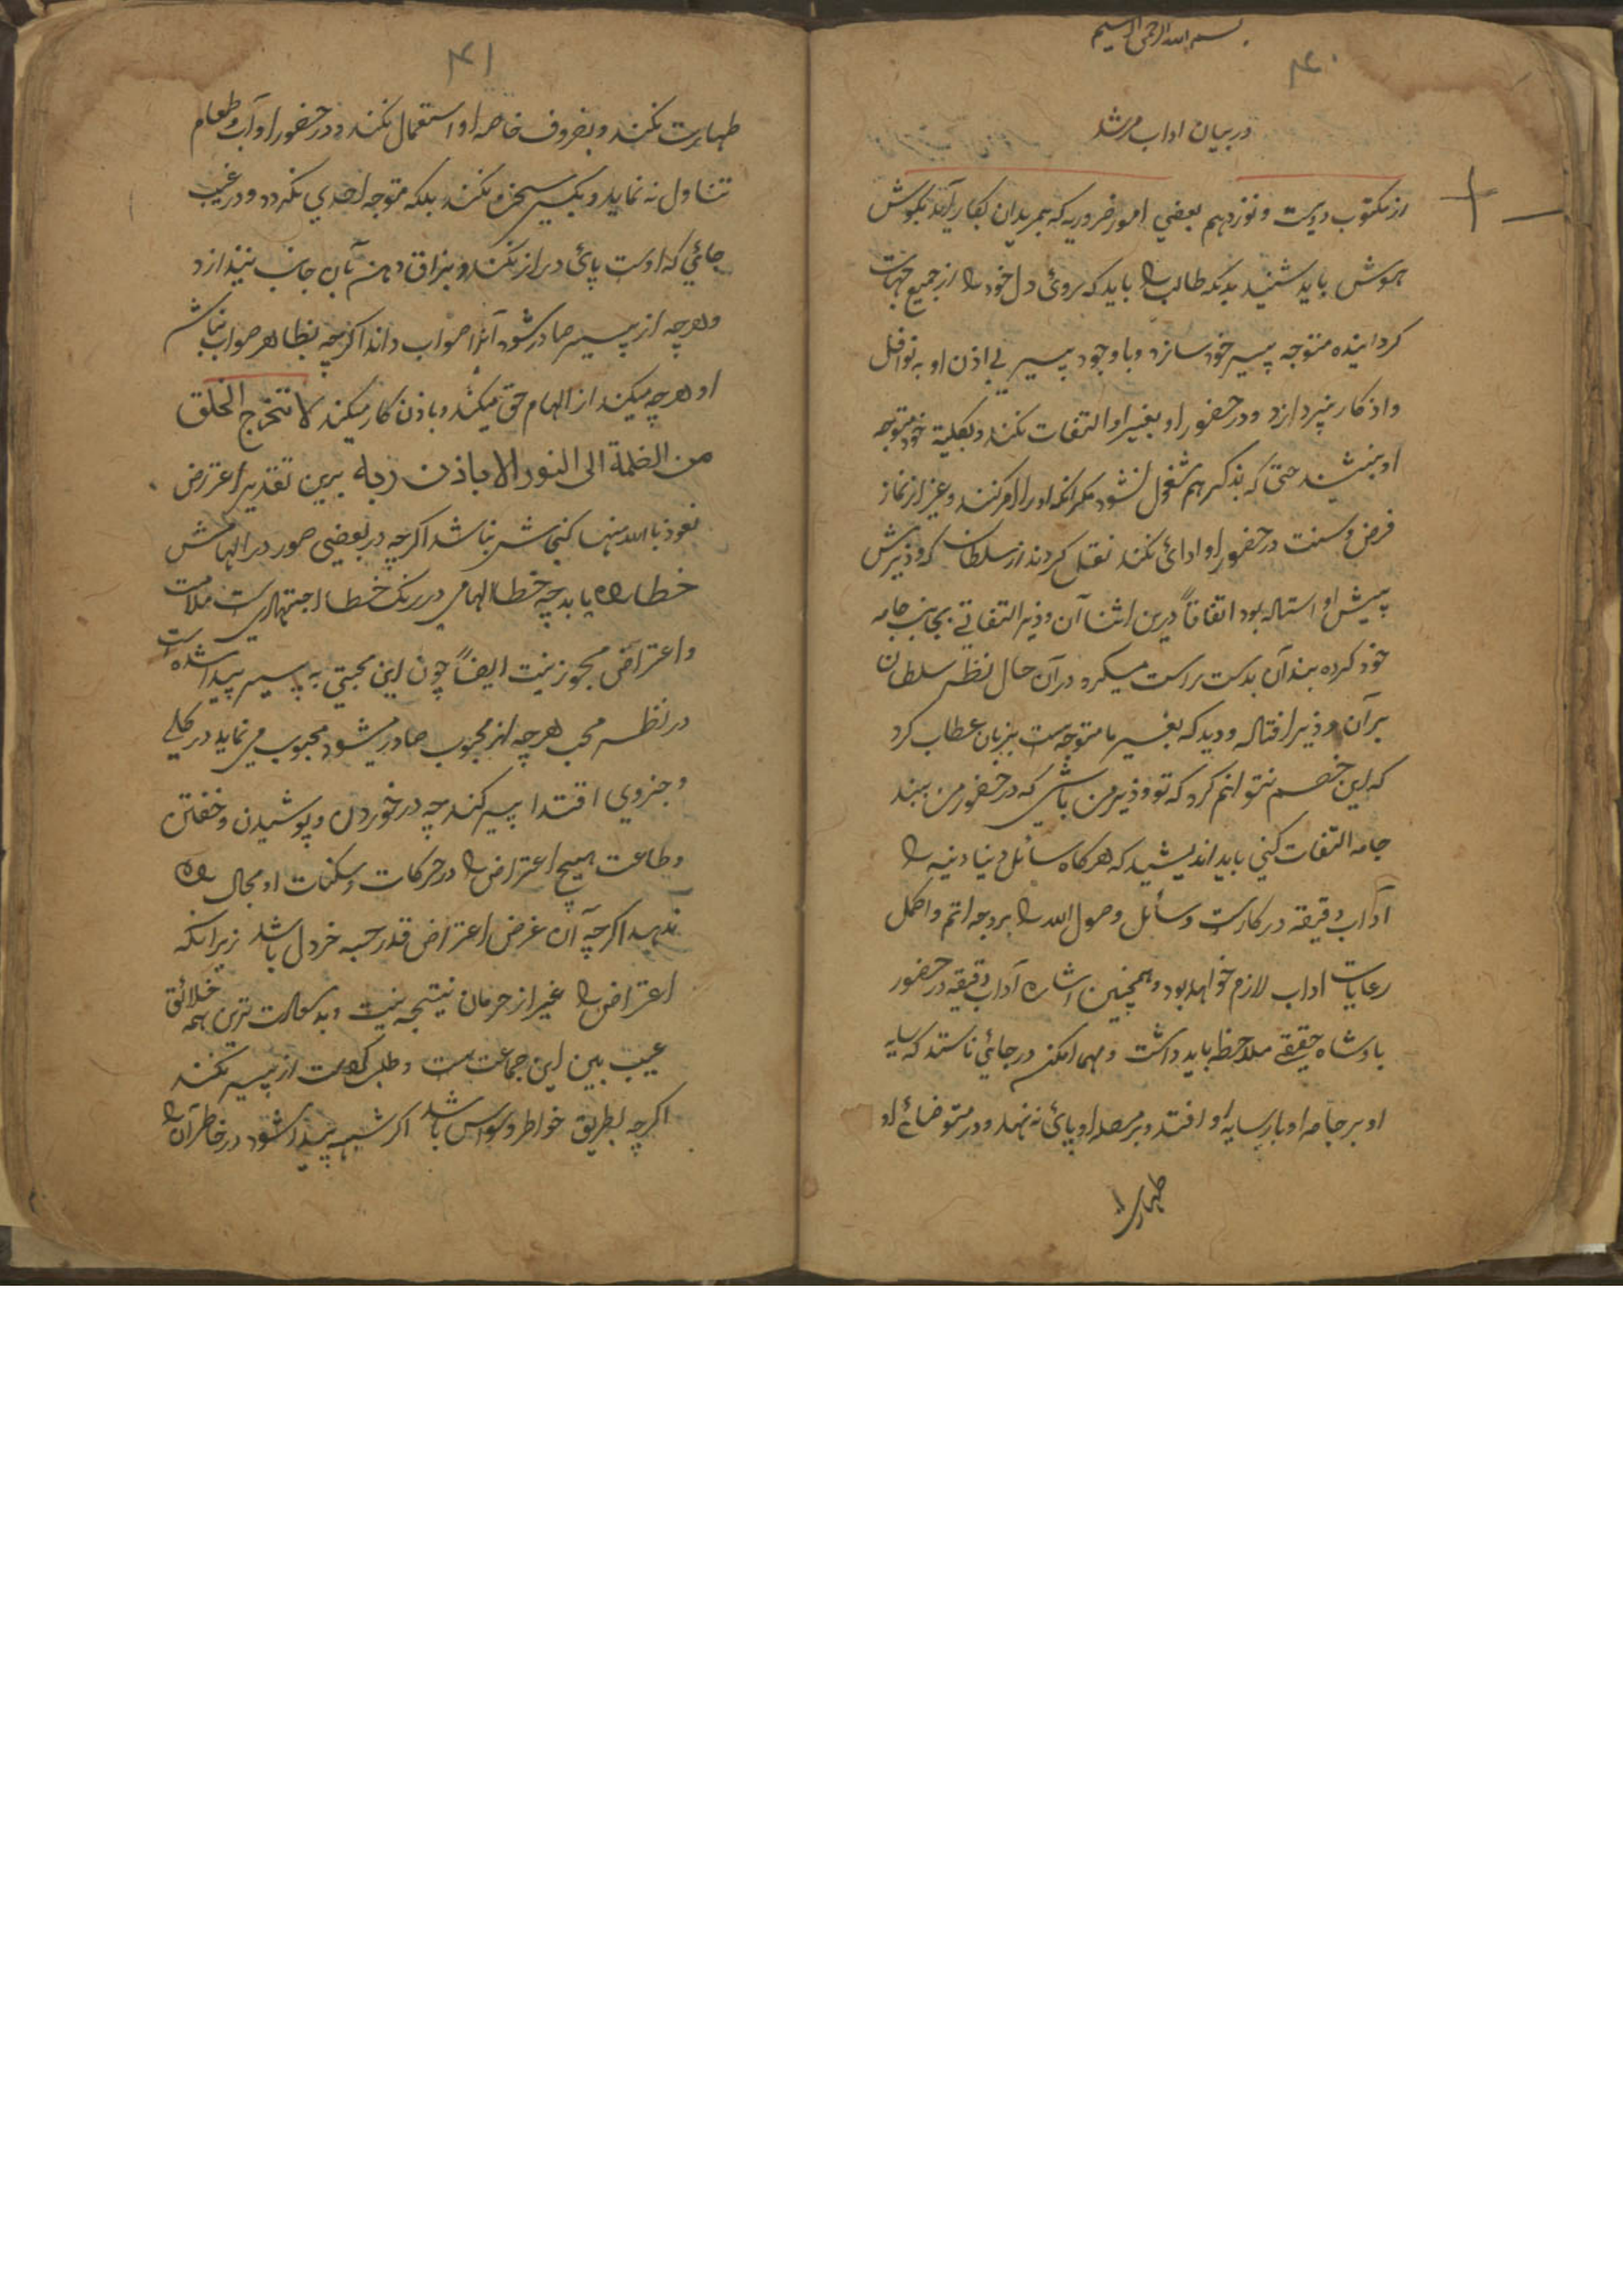 بسم الله الرحمن الرحیم
۴۰
در بیان اداب مرشد
از مکتوب دویست و نوزدهم بعضي امور ضروریه که بمریدان بکار آید بگوش
هوش باید شنید بدانکه طالب را باید که روئ دل خود را از جمیع جهات
کردانیده متوجه پیر خود سازد و با وجود پیر بے اذن او به نوافل
و اذکار نپردازد و در حضور او بغیر او التفات نکند و بکلیة خود متوجه
او بنشیند حتی که بذکر هم مشغول نشود مکر انکه او را امر کند و غیر از نماز
فرض و سنت در حضور او ادائ نکند نقل کردند از سلطان که وذیرش
پیش او استاده بود اتفاقاً درین اثنا آن وذیر التفاتے بجانب جامه
خود کرده بند آن بدست راست میکرد در آن حال نظر سلطان
بر آن وذیر افتاد و دید که بغیر ما متوجه ست بزبان عطاب کرد
که این هضم نتوانم کرد که تو وذیر من باشی که در حضور من ببند
جامه التفات کنی باید اندیشید که هرکاه سائل دنیا دنیه را
آداب دقیقه در کارست وسائل وصول الله را بر وجه اتم و اکمل
رعایات اداب لازم خواهد بود و همچنین آداب دقیقه در حضور
بادشاه حقیقے ملاحظه باید داشت و مهما امکن در جائي ناستد که سایه
او بر جامه او یا بر سایه او افتد و بر مصلا او پائ نه نهد و در متوضائ او
طهارت
۴۱
طهارت نکند و بظروف خاصه او استعمال نکند و در حضور او آب و طعام
تناول نه نماید و بکسی سخن نکند بلکه متوجه احدي نکردد و در غیب
جائي که اوست پائ دراز نکند و بزاق دهن بآن جانب نیندازد
و هرچه از پیر صادر شود آنرا صواب داند اکرچه بظاهر صواب نباشد
او هرچه میکند از الهام حق میکند و باذن کار میکند لا تخرج الخلق
من الظلمة الی النور الا باذن ربه برین تقدیر اعتراض
نعوذ بالله منها کنجائش نباشد اکرچه در بعضی صور در الهامش
خطا راه یابد چه خطا الهامي در رنک خطا اجتهادی ست ملامت
و اعتراض مجوز نیت ایضاً چون این محبتي به پیر پیدا شده است
در نظر محب هرچه از محبوب صادر میشود محبوب می نماید در کلے
و جزوي اقتدا پیر کند چه در خوردن و پوشیدن و خفتن
و طاعت هیچ اعتراض را در حرکات و سکنات او مجال راه
ندهد اکرچه آن غرض اعتراض قدر حبه خردل باشد زیرا نکه
اعتراض را غیر از حرمان نتیجه نیت و بد سعادت ترین همه خلائق
عیب بین این جماعت ست و طلب کرامت از پیر نکند
اکرچه بطریق خواطر و وسواس باشد اکر شبهه پیدا شود در خاطر آن را